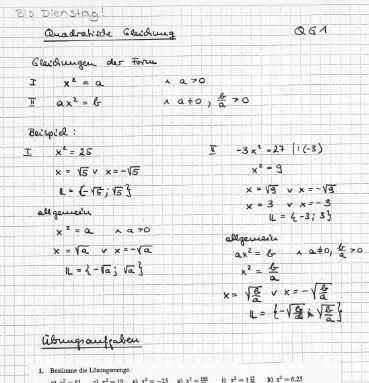 Bis Dienstag!
Quadratische Gleichung QG1
Gleichungen der Form
I x² = a ∧ a>0
II ax² = b ∧ a≠0, b/a > 0
Beispiel:
I x² = 25
x = √5 ∨ x = -√5
𝕃 = {-√5; √5}
allgemein
x² = a ∧ a>0
x = √a ∨ x = -√a
𝕃 = {-√a; √a}
II -3x² = 27 |:(-3)
x² = 9
x = √9 ∨ x = -√9
x = 3 ∨ x = -3
𝕃 = {-3; 3}
allgemein
ax² = b ∧ a≠0, b/a > 0
x² = b/a
x = √(b/a) ∨ x = -√(b/a)
𝕃 = {-√(b/a); √(b/a)}
Übungsaufgaben
1. Bestimme die Lösungsmenge.
x² = 81 x² = 19 x² = -25 x² = x² = 1 k) x² = 6,25